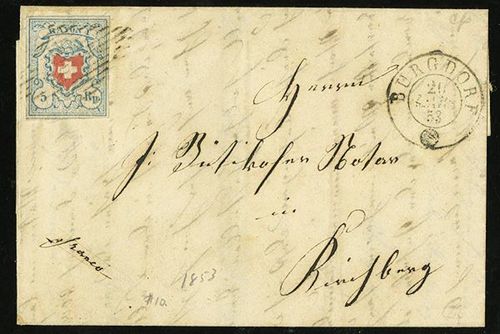 RAYON I
5 Rp.
BURGDORF
20
53
Herrn
J: Bütikofer Notar
in
Kirchberg
franco
1853
#10